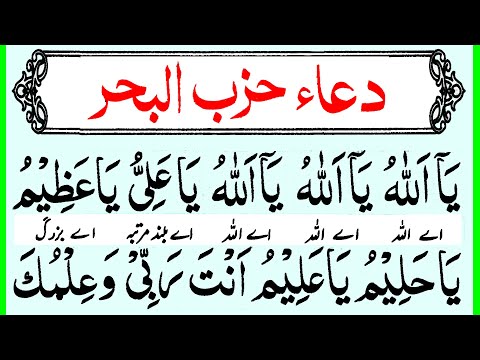 دعاء حزب البحر
يَآ اَللهُ يَآ اَللهُ يَآ اَللهُ يَا عَلِىُّ يَا عَظِيْمُ
اے اللہ اے اللہ اے اللہ اے بلند مرتبہ اے بزرگ
يَا حَلِيْمُ يَا عَلِيْمُ اَنْتَ رَبِّىْ وَعِلْمُكَ